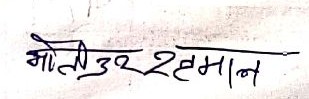 मोतीउर रहमान